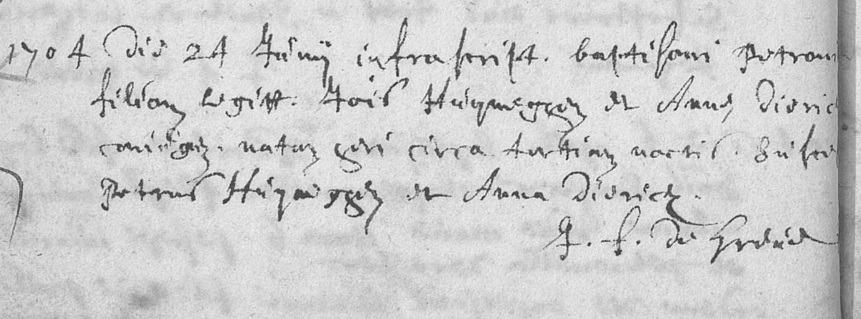 1704 Die 24 Junij infrascript. baptisavi Petrum
filiam legitt. Jois Huÿneggen et Anne Dieric
coniugu. natam heri circa tertiam noctis. Susce
Petrus Huÿneggen et Anna Diericx.
J. f. de